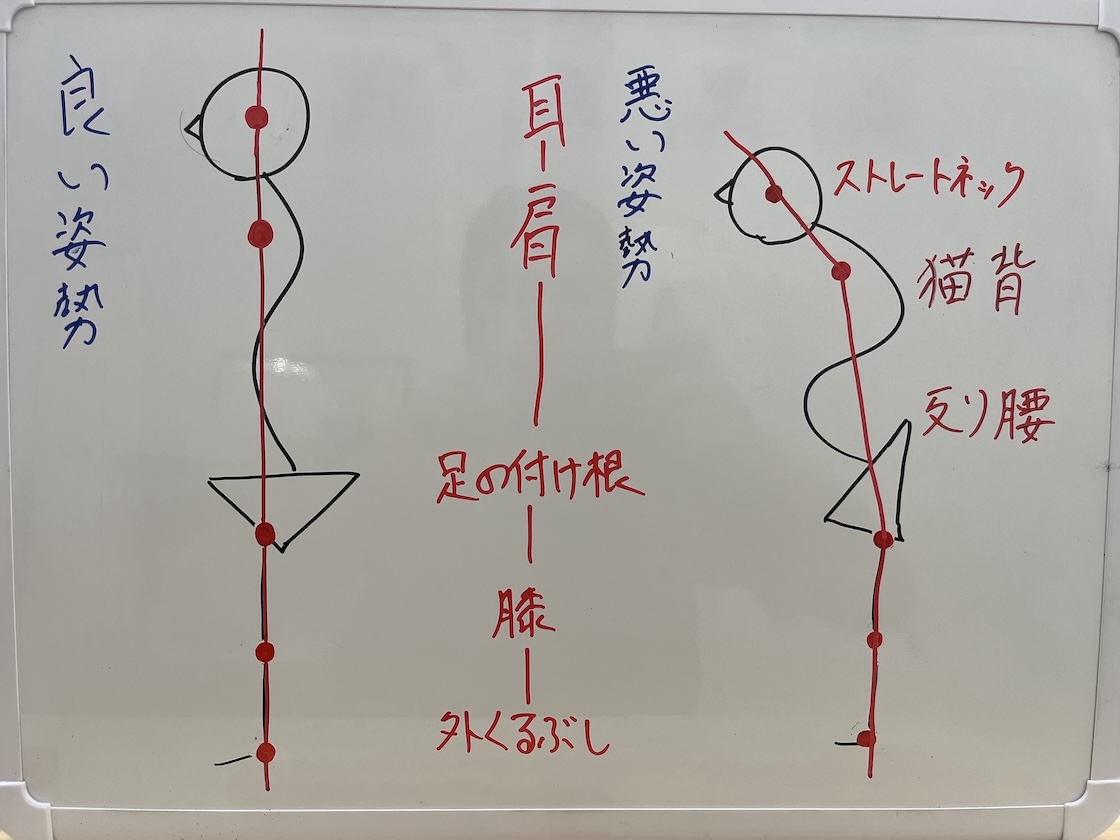 良い姿勢
耳
肩
足の付け根
膝
外くるぶし
悪い姿勢
ストレートネック
猫背
反り腰